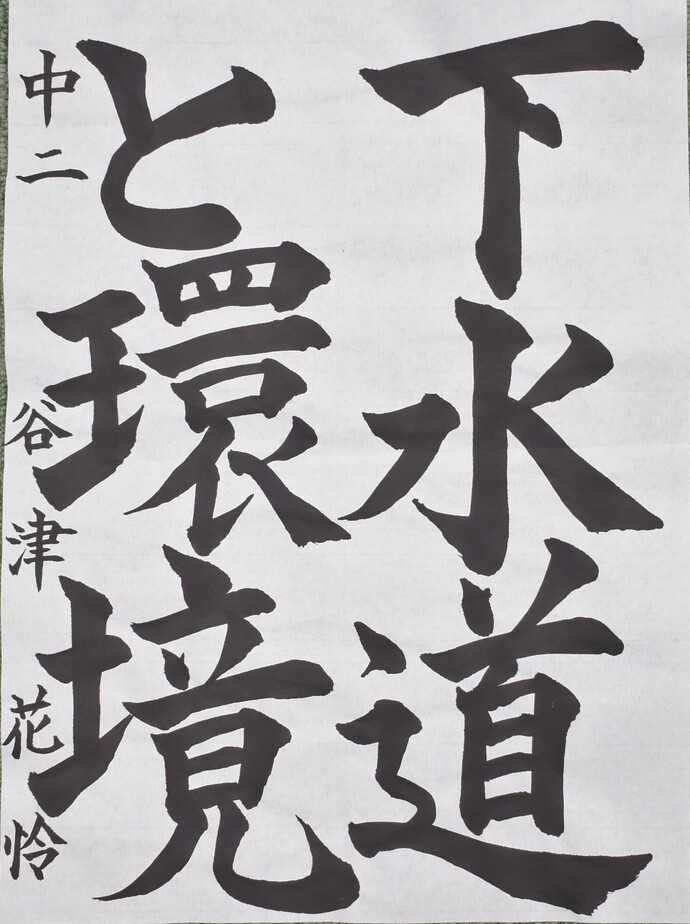 下水道
と環境
中二 谷津花怜